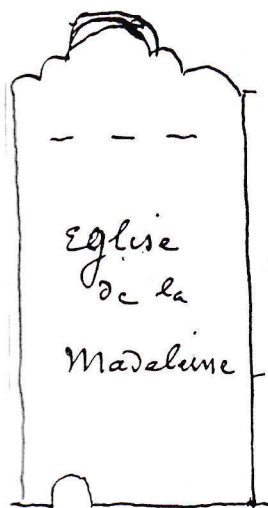 Eglise
de la
Madeleine